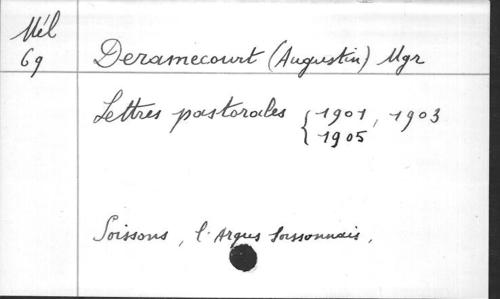 Mél
69
Deramecourt (Augustin) Mgr
Lettres pastorales { 1901, 1903
1905
Soissons, l'Argus Soissonnais.